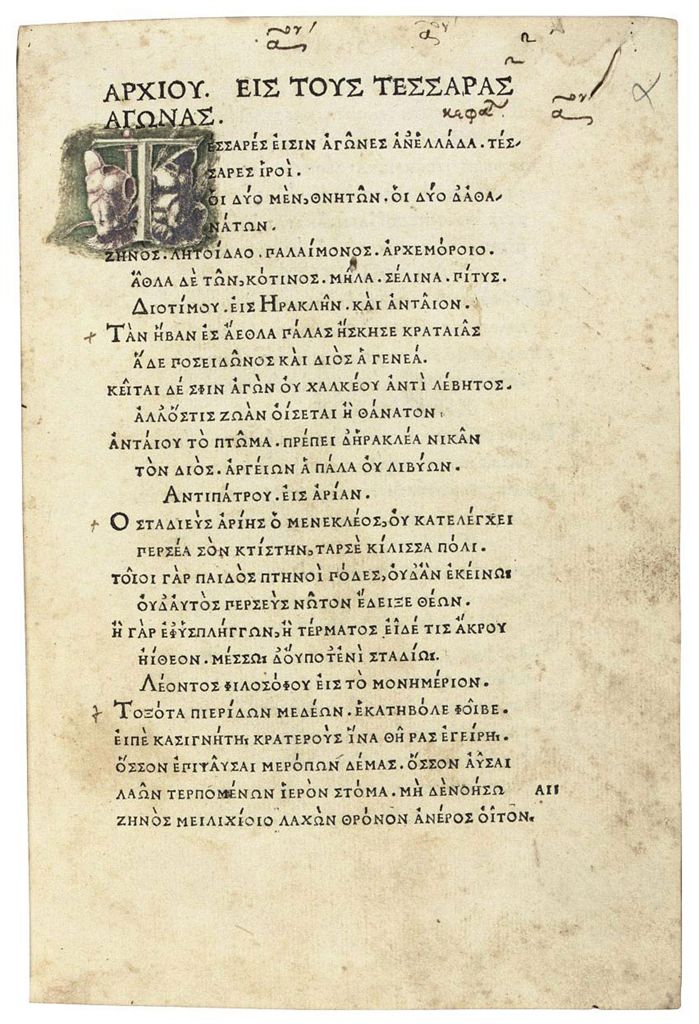 ΑΡΧΙΟΥ. ΕΙΣ ΤΟΥΣ ΤΕΣΣΑΡΑΣ
ΑΓΩΝΑΣ.
ΤΕΣΣΑΡΈΣ ΕἸΣΙΝ ἈΓΩ͂ΝΕΣ ἈΝΕΛΛΆΔΑ. ΤΈΣ-
ΣΑΡΕΣ ἹΡΟΊ.
ΟἹ ΔΎΟ ΜῈΝ, ΘΝΗΤΩ͂Ν. ΟἹ ΔΎΟ ΔἈΘΑ-
ΝΆΤΩΝ.
ΖΗΝΌΣ. ΛΗΤΟΪ́ΔΑΟ. ΠΑΛΑΊΜΟΝΟΣ. ἈΡΧΕΜΌΡΟΙΟ.
ἌΘΛΑ ΔῈ ΤΩ͂Ν, ΚΌΤΙΝΟΣ. ΜΗ͂ΛΑ. ΣΈΛΙΝΑ. ΠΊΤΥΣ.
ΔΙΟΤΊΜΟΥ. ΕἸΣ ἩΡΑΚΛΗ͂Ν. ΚΑῚ ἈΝΤΑΙ͂ΟΝ.
ΤᾺΝ ἭΒΑΝ ἘΣ ἌΕΘΛΑ ΠΆΛΑΣ ἬΣΚΗΣΕ ΚΡΑΤΑΙΑ͂Σ
ἍΔΕ ΠΟΣΕΙΔΩ͂ΝΟΣ ΚΑῚ ΔΙῸΣ Ἁ ΓΕΝΕΆ.
ΚΕΙ͂ΤΑΙ ΔΈ ΣΦΙΝ ἈΓῺΝ ΟΥ̓ ΧΑΛΚΈΟΥ ἈΝΤῚ ΛΈΒΗΤΟΣ.
ἈΛΛΌΣΤΙΣ ΖΩᾺΝ ΟἼΣΕΤΑΙ Ἢ ΘΆΝΑΤΟΝ.
ἈΝΤΑΊΟΥ ΤῸ ΠΤΩ͂ΜΑ. ΠΡΈΠΕΙ ΔἩΡΑΚΛΈΑ ΝΙΚΑ͂Ν
ΤῸΝ ΔΙΌΣ. ἈΡΓΕΊΩΝ Ἁ ΠΆΛΑ ΟΥ̓ ΛΙΒΎΩΝ.
ΑΝΤΙΠΆΤΡΟΥ. ΕἸΣ ἈΡΊΑΝ.
Ὁ ΣΤΑΔΙΕῪΣ ἈΡΊΗΣ Ὁ ΜΕΝΕΚΛΈΟΣ, ΟΥ̓ ΚΑΤΕΛΈΓΧΕΙ
ΠΕΡΣΈΑ ΣῸΝ ΚΤΊΣΤΗΝ, ΤΑΡΣῈ ΚΊΛΙΣΣΑ ΠΌΛΙ.
ΤΟΙ͂ΟΙ ΓᾺΡ ΠΑΙΔῸΣ ΠΤΗΝΟῚ ΠΌΔΕΣ, ΟΥ̓ΔἊΝ ἘΚΕΊΝΩΙ
ΟΥ̓ΔΑΥ̓ΤῸΣ ΠΕΡΣΕῪΣ ΝΩ͂ΤΟΝ ἜΔΕΙΞΕ ΘΈΩΝ.
Ἢ ΓᾺΡ ἘΦΥΣΠΛΉΓΓΩΝ, Ἢ ΤΈΡΜΑΤΟΣ ΕἾΔΈ ΤΙΣ ἌΚΡΟΥ
ἨΪ́ΘΕΟΝ. ΜΈΣΣΩΙ ΔΟΎΠΟΤἘΝῚ ΣΤΑΔΊΩΙ.
ΛΈΟΝΤΟΣ ΦΙΛΟΣΌΦΟΥ ΕἸΣ ΤῸ ΜΟΝΗΜΈΡΙΟΝ.
ΤΟΞΌΤΑ ΠΙΕΡΊΔΩΝ ΜΕΔΈΩΝ. ἙΚΑΤΗΒΌΛΕ ΦΟΙ͂ΒΕ.
ΕἸΠῈ ΚΑΣΙΓΝΉΤΗΙ ΚΡΑΤΕΡΟῪΣ ἽΝΑ ΘΗ͂ΡΑΣ ἘΓΕΊΡΗΙ.
ὍΣΣΟΝ ἘΠΙΨΑΥ͂ΣΑΙ ΜΕΡΌΠΩΝ ΔΈΜΑΣ. ὍΣΣΟΝ ἈΫ͂ΣΑΙ
ΛΑΩ͂Ν ΤΕΡΠΟΜΈΝΩΝ ἹΕΡῸΝ ΣΤΌΜΑ. ΜΗ ΔῈΝΟΉΣΩ ΑΙΙ
ΖΗΝῸΣ ΜΕΙΛΙΧΊΟΙΟ ΛΑΧῺΝ ΘΡΌΝΟΝ ἈΝΈΡΟΣ ΟἾΤΟΝ.